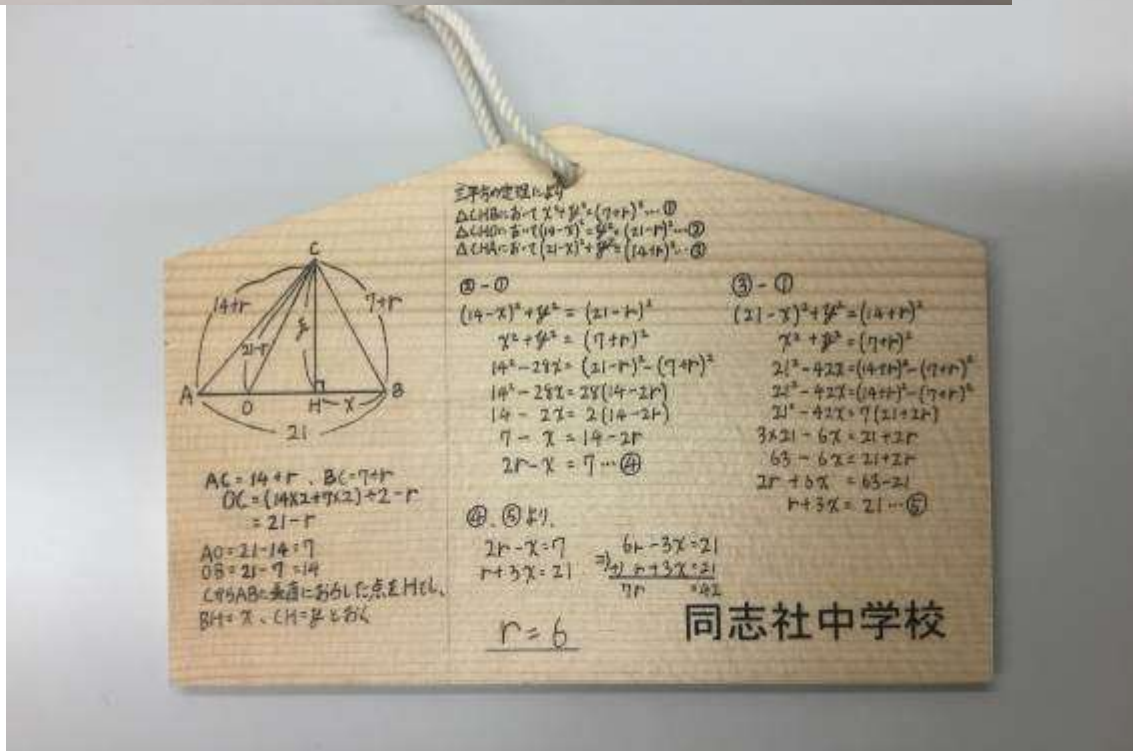 C
14+r
7+r
21-r
y
A
O
H
x
B
21
AC = 14+r、BC=7+r
OC = (14×2+7×2)÷2-r
= 21-r
AO=21-14=7
OB=21-7=14
CからABに垂直におろした点をHとし、
BH=x、CH=yとおく
三平方の定理により
△CHBにおいて x²+y²=(7+r)²…①
△CHOにおいて(14-x)²=y²=(21-r)²…②
△CHAにおいて(21-x)²+y²=(14+r)²…③
②-①
(14-x)²+y² = (21-r)²
x²+y² = (7+r)²
14²-28x = (21-r)²-(7+r)²
14²-28x = 28(14-2r)
14 - 2x = 2(14-2r)
7 - x = 14-2r
2r-x = 7…④
③-①
(21-x)²+y²=(14+r)²
x²+y²=(7+r)²
21²-42x=(14+r)²-(7+r)²
21²-42x=(14+r)²-(7+r)²
21²-42x=7(21+2r)
3×21-6x=21+2r
63-6x=21+2r
2r+6x=63-21
r+3x=21…⑤
④、⑤より、
2r-x=7
r+3x=21
⇒
6r-3x=21
+) r+3x=21
7r =42
r=6
同志社中学校